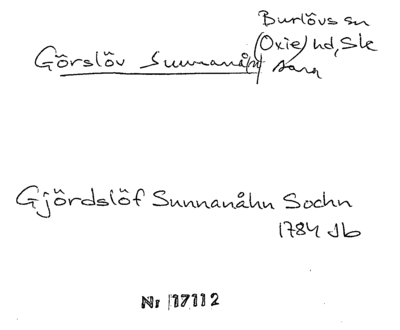 Burlövs sn
(Oxie) hd, Sk
Görslöv Sunnanå
Gjördslöf Sunnanåhn Sochn
1784 Jb
Nr 17112